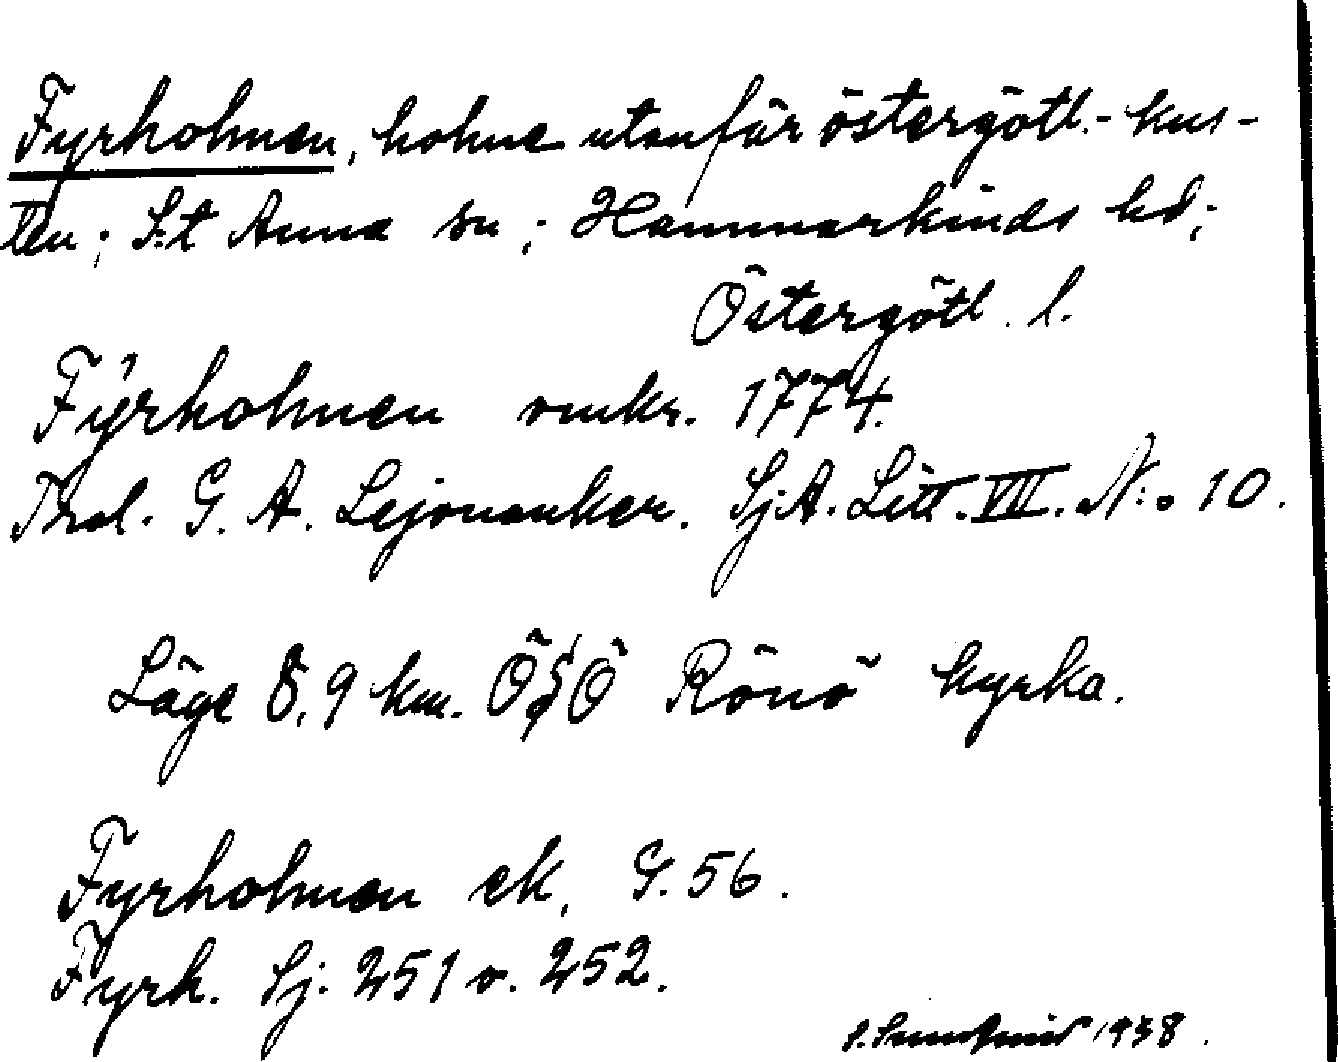 Fyrholmen, holme utanför östergötl.- kus-
ten; S:t Anna sn; Hammarkinds hd;
Östergötl. l.
Fÿrholmen omkr. 1774.
G. A. Lejonanker. SjA. Litt. VIII. N:o 10.
Läge 8,9 km. ÖSÖ Rönö kyrka.
Fyrholmen ek, G. 56.
Fyrh. Sj. 251 o. 252.
1938.